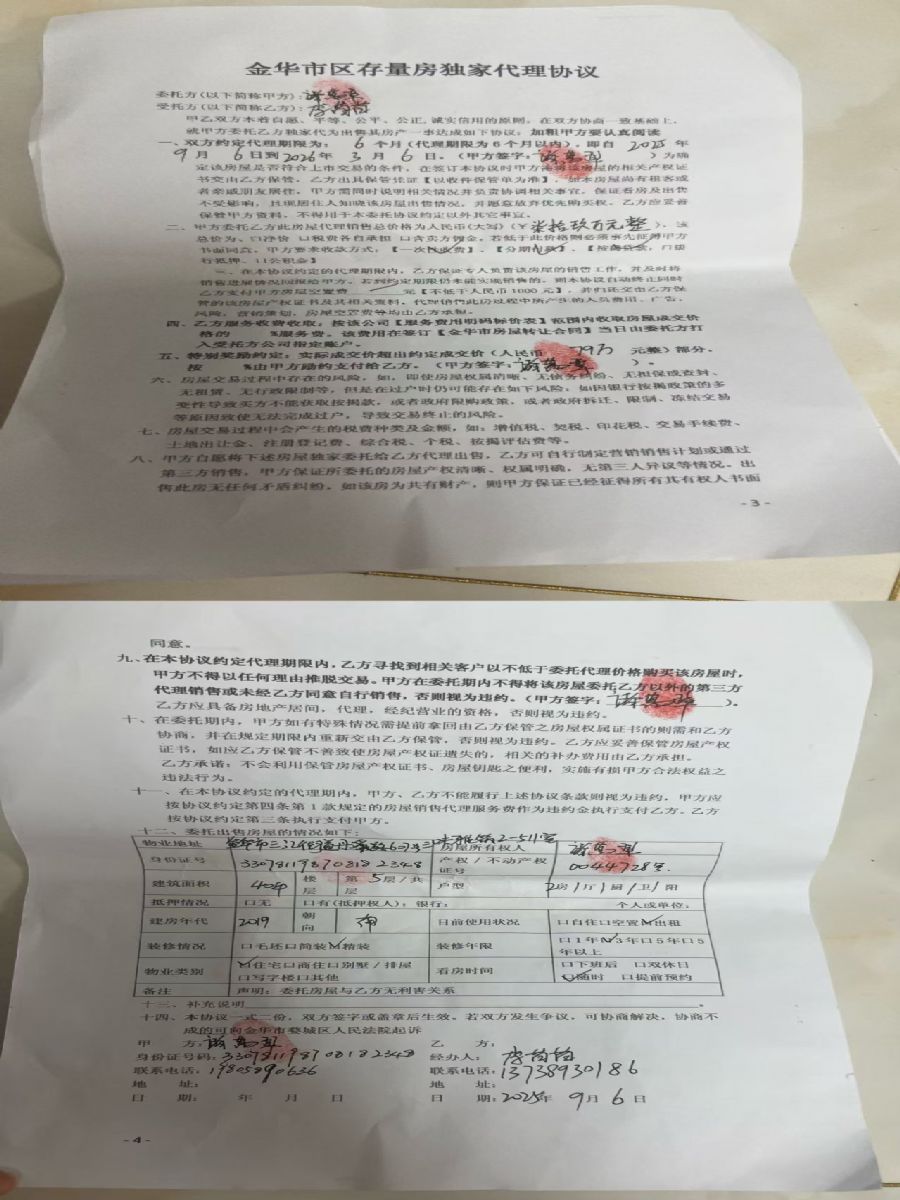 金华市区存量房独家代理协议
委托方(以下简称甲方):
受托方(以下简称乙方):
甲乙双方本着自愿、平等、公平、公正、诚实信用的原则,在双方协商一致基础上,
就甲方委托乙方独家代为出售其房产一事达成如下协议:加粗甲方要认真阅读
一、双方约定代理期限为: 6 个月(代理期限为6个月以内)。即自 2025 年
9月 6日到2026年 3月 6日。(甲方签字: )为确
定该房屋是否符合上市交易的条件,在签订本协议时甲方需将该房屋的相关产权证
书交由乙方保管,乙方出具保管凭证【以收件保管单为准】。如本房屋尚有租客或
者亲戚朋友居住,甲方需同时说明相关情况并负责协调相关事宜,保证看房及出售
不受影响,且现居住人知晓该房屋出售情况,并愿意放弃优先购买权。乙方应妥善
保管甲方资料,不得用于本委托协议约定以外其它事宜。
二、甲方委托乙方此房屋代理销售总价格为人民币(大写)(¥柒拾玖万元整),该
总价为、口净价 口税费各自承担 口含卖方佣金,若低于此价格则必须事先征得甲方
书面同意。甲方要求收款方式:【一次性收费】、【分期付款】、【按揭贷款,口银
行抵押、口公积金】
三、在本协议约定的代理期限内,乙方保证专人负责该房屋的销售工作,并及时将
销售进展情况回报给甲方。若到约定期限仍未能实现销售的,则本协议自动终止同时
乙方支付甲方房屋空置费 元【不低于人民币1000元】,并归还交由乙方保
管的该房屋产权证书及其相关资料,代理销售此房过程中所产生的人员费用、广告、
风险、营销策划、房屋空置费等均由乙方承担。
四、乙方服务收费收取:按该公司【服务费用明码标价表】范围内收取房屋成交价
格的 %服务费。该费用在签订【金华市房屋转让合同】当日由委托方打
入受托方公司指定账户。
五、特别奖励约定:实际成交价超出约定成交价(人民币 79万 元整)部分,
按 %由甲方励约支付给乙方。(甲方签字: )
六、房屋交易过程中存在的风险,如,即使房屋权属清晰、无债务纠纷、无担保或查封、
无租赁、无行政限制等,但是在过户时仍可能存在如下风险:如因银行按揭政策的多
变性导致买方不能获取按揭款,或者政府限购政策,或者政府拆迁、限制、冻结交易
等原因致使无法完成过户,导致交易终止的风险。
七、房屋交易过程中会产生的税费种类及金额,如:增值税、契税、印花税、交易手续费、
土地出让金、注册登记费、综合税、个税、按揭评估费等。
八、甲方自愿将下述房屋独家委托给乙方代理出售,乙方可自行制定营销销售计划或通过
第三方销售,甲方保证所委托的房屋产权清晰、权属明确,无第三人异议等情况。出
售此房无任何矛盾纠纷,如该房为共有财产,则甲方保证已经征得所有共有权人书面
- 3 -
同意。
九、在本协议约定代理期限内,乙方寻找到相关客户以不低于委托代理价格购买该房屋时,
甲方不得以任何理由推脱交易。甲方在委托期内不得将该房屋委托乙方以外的第三方
代理销售或未经乙方同意自行销售,否则视为违约。(甲方签字: )。
乙方应具备房地产居间,代理,经纪营业的资格,否则视为违约。
十、在委托期内,甲方如有特殊情况需提前拿回由乙方保管之房屋权属证书的则需和乙方
协商,并在规定期限内重新交由乙方保管,否则视为违约。乙方应妥善保管房屋产权
证书,如应乙方保管不善致使房屋产权证遗失的,相关的补办费用由乙方承担。
乙方承诺:不会利用保管房屋产权证书、房屋钥匙之便利,实施有损甲方合法权益之
违法行为。
十一、在本协议约定的代理期内,甲方、乙方不能履行上述协议条款则视为违约,甲方应
按协议约定第四条第1款规定的房屋销售代理服务费作为违约金执行支付乙方。乙方
按协议约定第三条执行支付甲方。
十二、委托出售房屋的情况如下:
物业地址 2-511室 房屋所有权人
身份证号 330781198908182348 产权/不动产权证号 0044728号
建筑面积 楼层 第 5层/共 层 户型 2房1厅1厨1卫1阳
抵押情况 口无 口有(抵押权人):银行: 个人或单位:
建房年代 2019 朝向 南 目前使用状况 口自住口空置☑出租
装修情况 口毛坯口简装☑精装 装修年限 口1年☑3年口5年口5年以上
物业类别 ☑住宅口商住口别墅/排屋口写字楼口其他 看房时间 口下班后 口双休日 ☑随时 口提前预约
备注 声明:委托房屋与乙方无利害关系
十三、补充说明 。
十四、本协议一式二份,双方签字或盖章后生效。若双方发生争议,可协商解决,协商不
成的可向金华市婺城区人民法院起诉
甲 方: 乙 方:
身份证号码:330781198908182348 经办人:
联系电话:19805890636 联系电话:13738930186
地 址: 地 址:
日 期: 年 月 日 日 期:2025年 9月 6日
- 4 -